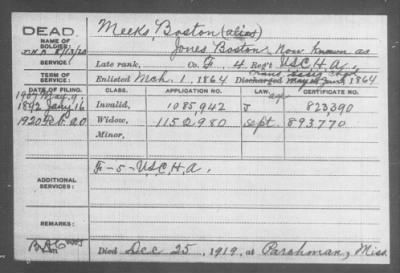 DEAD.
Meeks, Boston (alias)
NAME OF SOLDIER:
Jones Boston, Now known as
SERVICE:
Late rank, Co. F 4 Reg't U.S.C.H.A.,
TERM OF SERVICE:
Enlisted Mch. 1, 1864 Discharged 1864
DATE OF FILING. CLASS. APPLICATION NO. LAW. CERTIFICATE NO.
1907 May 9
1892 Jany 16 Invalid, 1085,942 J 823,390
1920 Feb. 20 Widow, 1152980 Sept. 893,770
Minor,
ADDITIONAL SERVICES:
F-5-U.S.C.H.A.
REMARKS:
Died Dec 25, 1919, at Parchman, Miss.